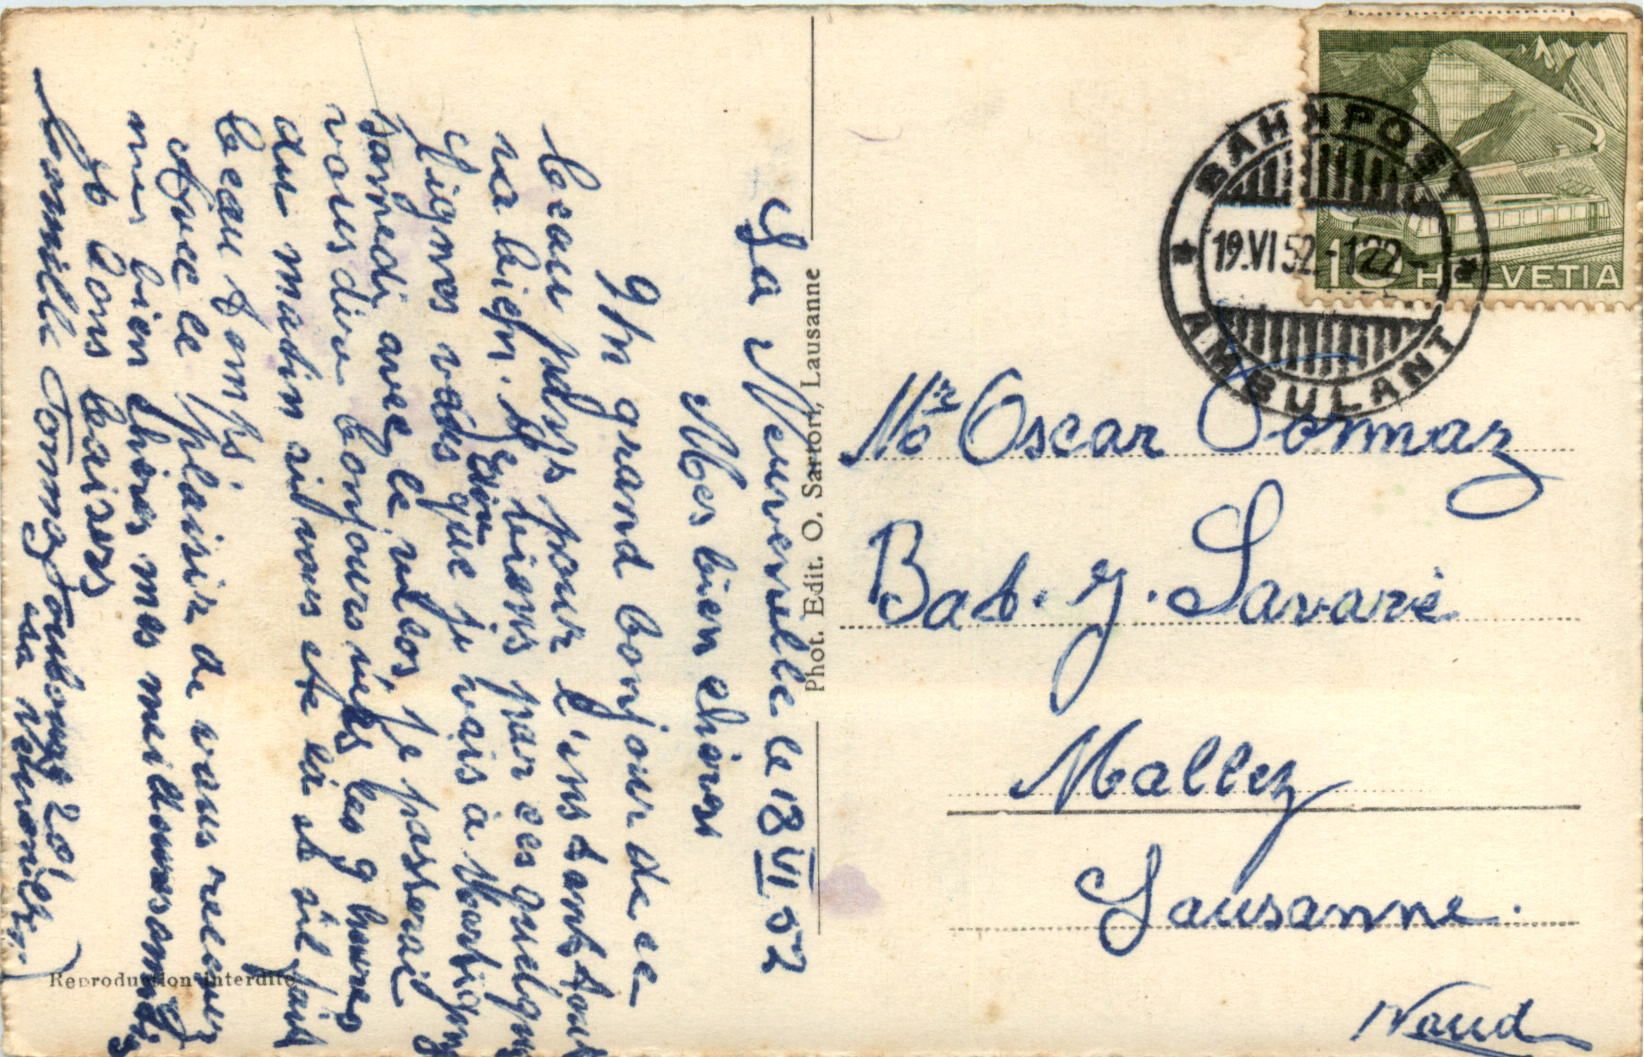 La Neuveville le 18 VI 52
Mes bien chères
Un grand bonjour de ce
beau pays pour l'instant tout
va bien. Je viens par ces quelques
lignes vous dire que je vais à Martigny
samedi avec le vélos, je passerais
vous dire bonjours vers les 9 heures
du matin si vous ete là et s'il fait
beau temps
Avec le plaisir de vous recevoir
mes bien chères mes meilleures amitiés
et bons baisers
Camille Tornaz Faubourg 28
La Neuveville
Phot. Edit. O. Sartori, Lausanne
Reproduction interdite
BAHNPOST
19.VI 52.-1122-
AMBULANT
10 HELVETIA
Mr Oscar Tornaz
Bat. J. Savarè
Malley
Lausanne.
Vaud